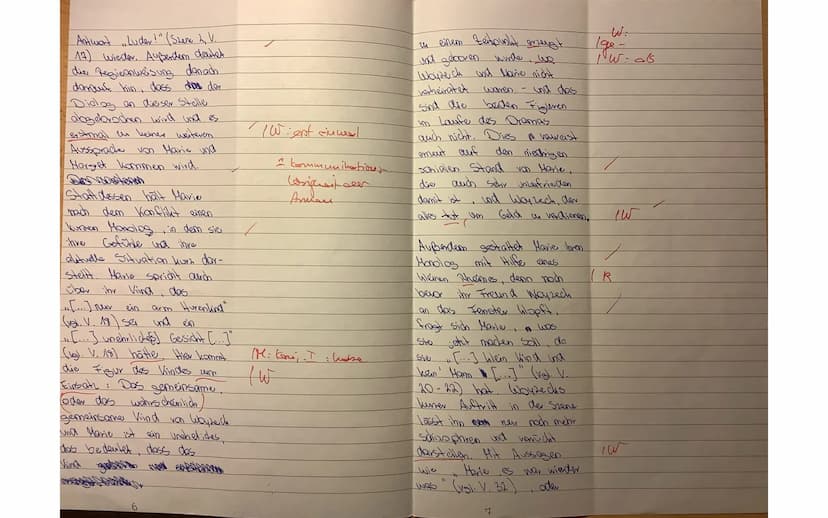 Antwort „Luder!" (Szene 2, V.
17) wieder. Außerdem deutet
die Regieanweisung danach
darauf hin, dass der
Dialog an dieser Stelle
abgebrochen wird und es
erstmal zu keiner weiteren
Aussprache von Marie und
Margret kommen wird.
Stattdessen hält Marie
nach dem Konflikt einen
kurzen Monolog, in dem sie
ihre Gefühle und ihre
aktuelle Situation kurz dar-
stellt. Marie spricht auch
über ihr Kind, das
„[...] nur ein arm Hurenkind"
(vgl. V. 19) sei und ein
„[...] unehrlich[es] Gesicht [...]"
(vgl. V. 19) hätte. Hier kommt
die Figur des Kindes zum
Einsatz: Das gemeinsame,
(oder das wahrscheinlich)
gemeinsame Kind von Woyzeck
und Marie ist ein uneheliches,
das bedeutet, dass das
Kind
6
W: erst einmal
W
zu einem Zeitpunkt erzeugt
und geboren wurde, wo
Woyzeck und Marie nicht
verheiratet waren – und das
sind die beiden Figuren
im Laufe des Dramas
auch nicht. Dies verweist
erneut auf den niedrigen
sozialen Stand von Marie,
die auch sehr unzufrieden
damit ist, und Woyzeck, der
alles tut, um Geld zu verdienen.
Außerdem gestaltet Marie ihren
Monolog mit Hilfe eines
kleinen Reimes, denn noch
bevor ihr Freund Woyzeck
an das Fenster klopft,
fragt sich Marie, was
sie jetzt machen soll, da
sie „[...] klein Kind und
kein' Mann [...]" (vgl. V.
20-22) hat. Woyzecks
kurzer Auftritt in der Szene
lässt ihn nur noch mehr
schizophren und verrückt
darstellen. Mit Aussagen
wie „Marie es war wieder
was" (vgl. V. 32), oder
7
W:
ge-
W: als
W
R
W